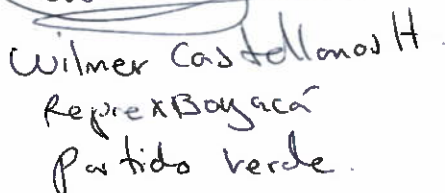 Wilmer Castellanos H
Repre x Boyacá
Partido Verde.